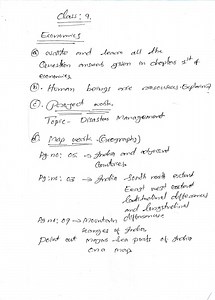 Class: 9.
Economics
(a) write and learn all the
Question answers given in chapter 1st of
economics.
(b). Human beings are resources-Explain
(c). Project work.
Topic- Disaster Management
(d). Map work. (Geography)
Pg:no: 05 → India and adjacent
Countries
Pg:no: 03 → India South north extent
East west extent
Latitudinal differences
and longitudinal
differences
Pg no: 09 → Mountain
Ranges of India
Point out major sea ports of India
on a map.